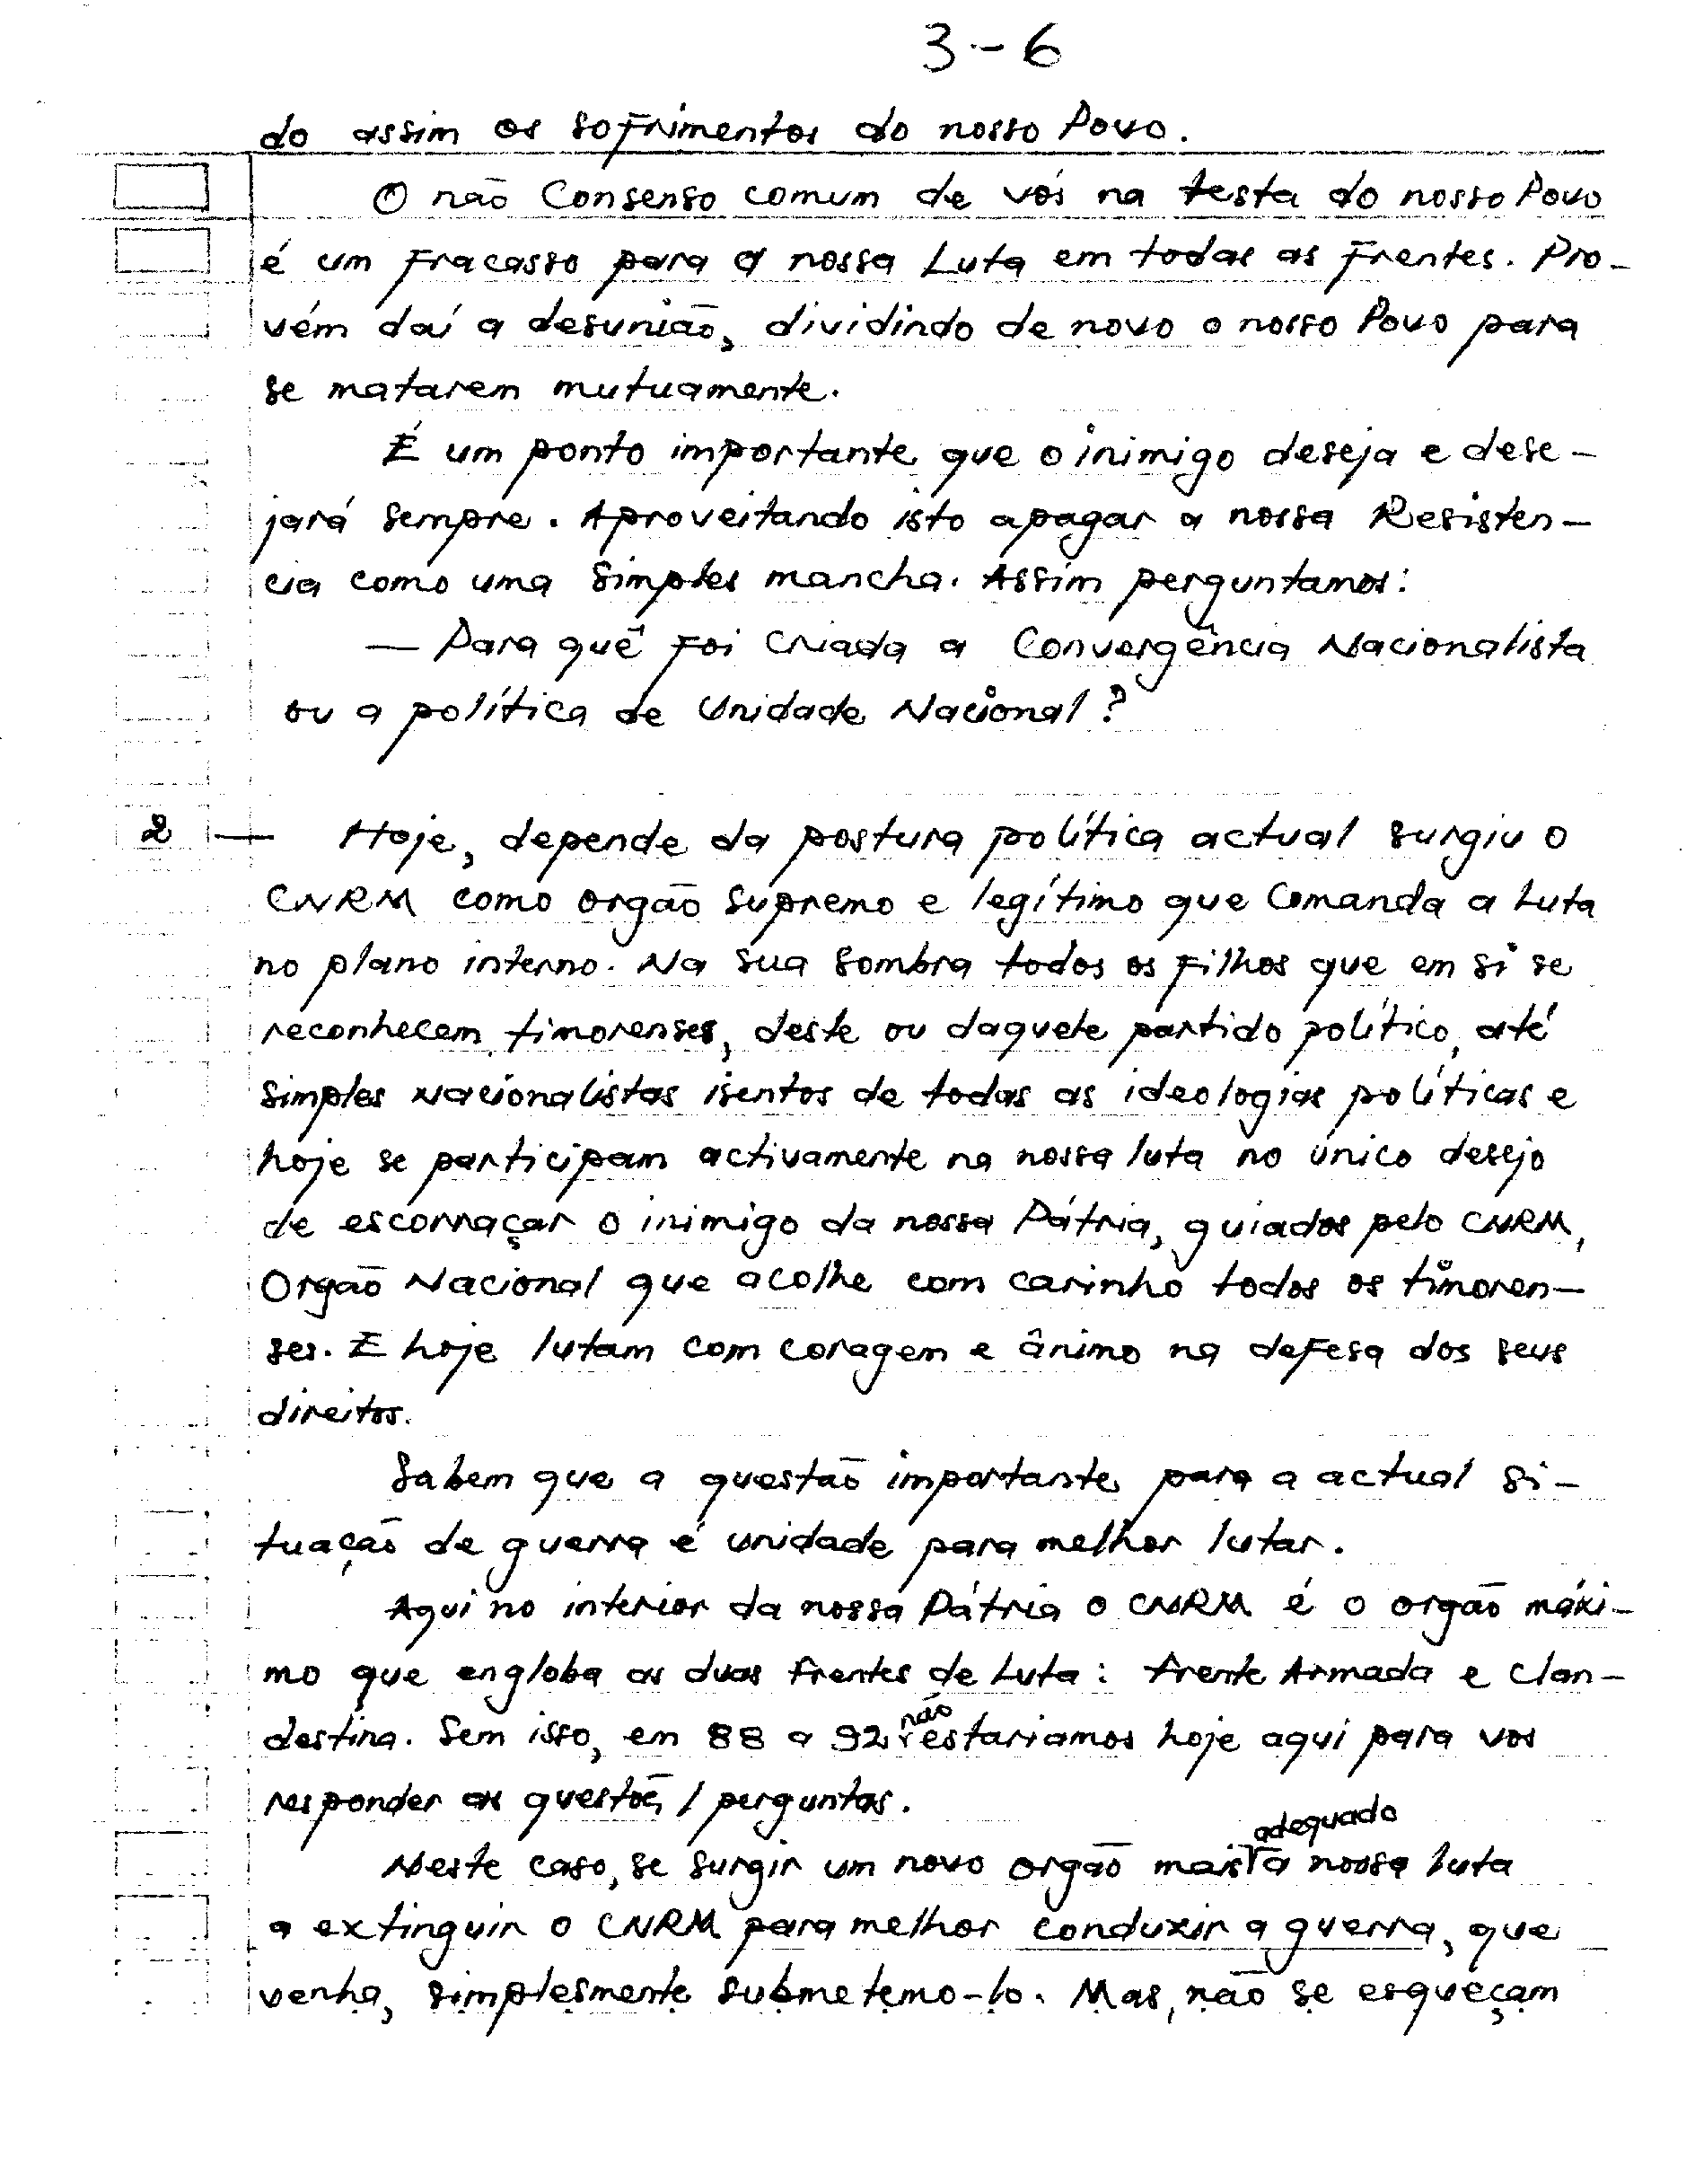 3-6
do assim os sofrimentos do nosso Povo.
O não Consenso comum de vós na testa do nosso Povo
é um fracasso para a nossa Luta em todas as frentes. Pro-
vém daí a desunião, dividindo de novo o nosso Povo para
se matarem mutuamente.
É um ponto importante que o inimigo deseja e dese-
jará sempre. Aproveitando isto apagar a nossa Resisten-
cia como uma simples mancha. Assim perguntamos:
— Para quê foi criada a Convergência Nacionalista
ou a política de Unidade Nacional?
2 — Hoje, depende da postura política actual surgiu o
CNRM como orgão supremo e legítimo que Comanda a Luta
no plano interno. Na sua sombra todos os filhos que em si se
reconhecem timorenses, deste ou daquele partido político, até
simples nacionalistas isentos de todas as ideologias políticas e
hoje se participam activamente na nossa luta no único desejo
de escorraçar o inimigo da nossa Pátria, guiados pelo CNRM,
Orgão Nacional que acolhe com carinho todos os timoren-
ses. E hoje lutam com coragem e ânimo na defesa dos seus
direitos.
Sabem que a questão importante para a actual si-
tuação de guerra é unidade para melhor lutar.
Aqui no interior da nossa Pátria o CNRM é o orgão máxi-
mo que engloba as duas frentes de Luta: frente Armada e Clan-
destina. Sem isso, en 88 a 92 não estariamos hoje aqui para vos
responder as questões / perguntas.
Neste caso, se surgir um novo orgão mais adequado a nossa luta
a extinguir o CNRM para melhor conduxir a guerra, que
venha, simplesmente submetemo-lo. Mas, não se esqueçam